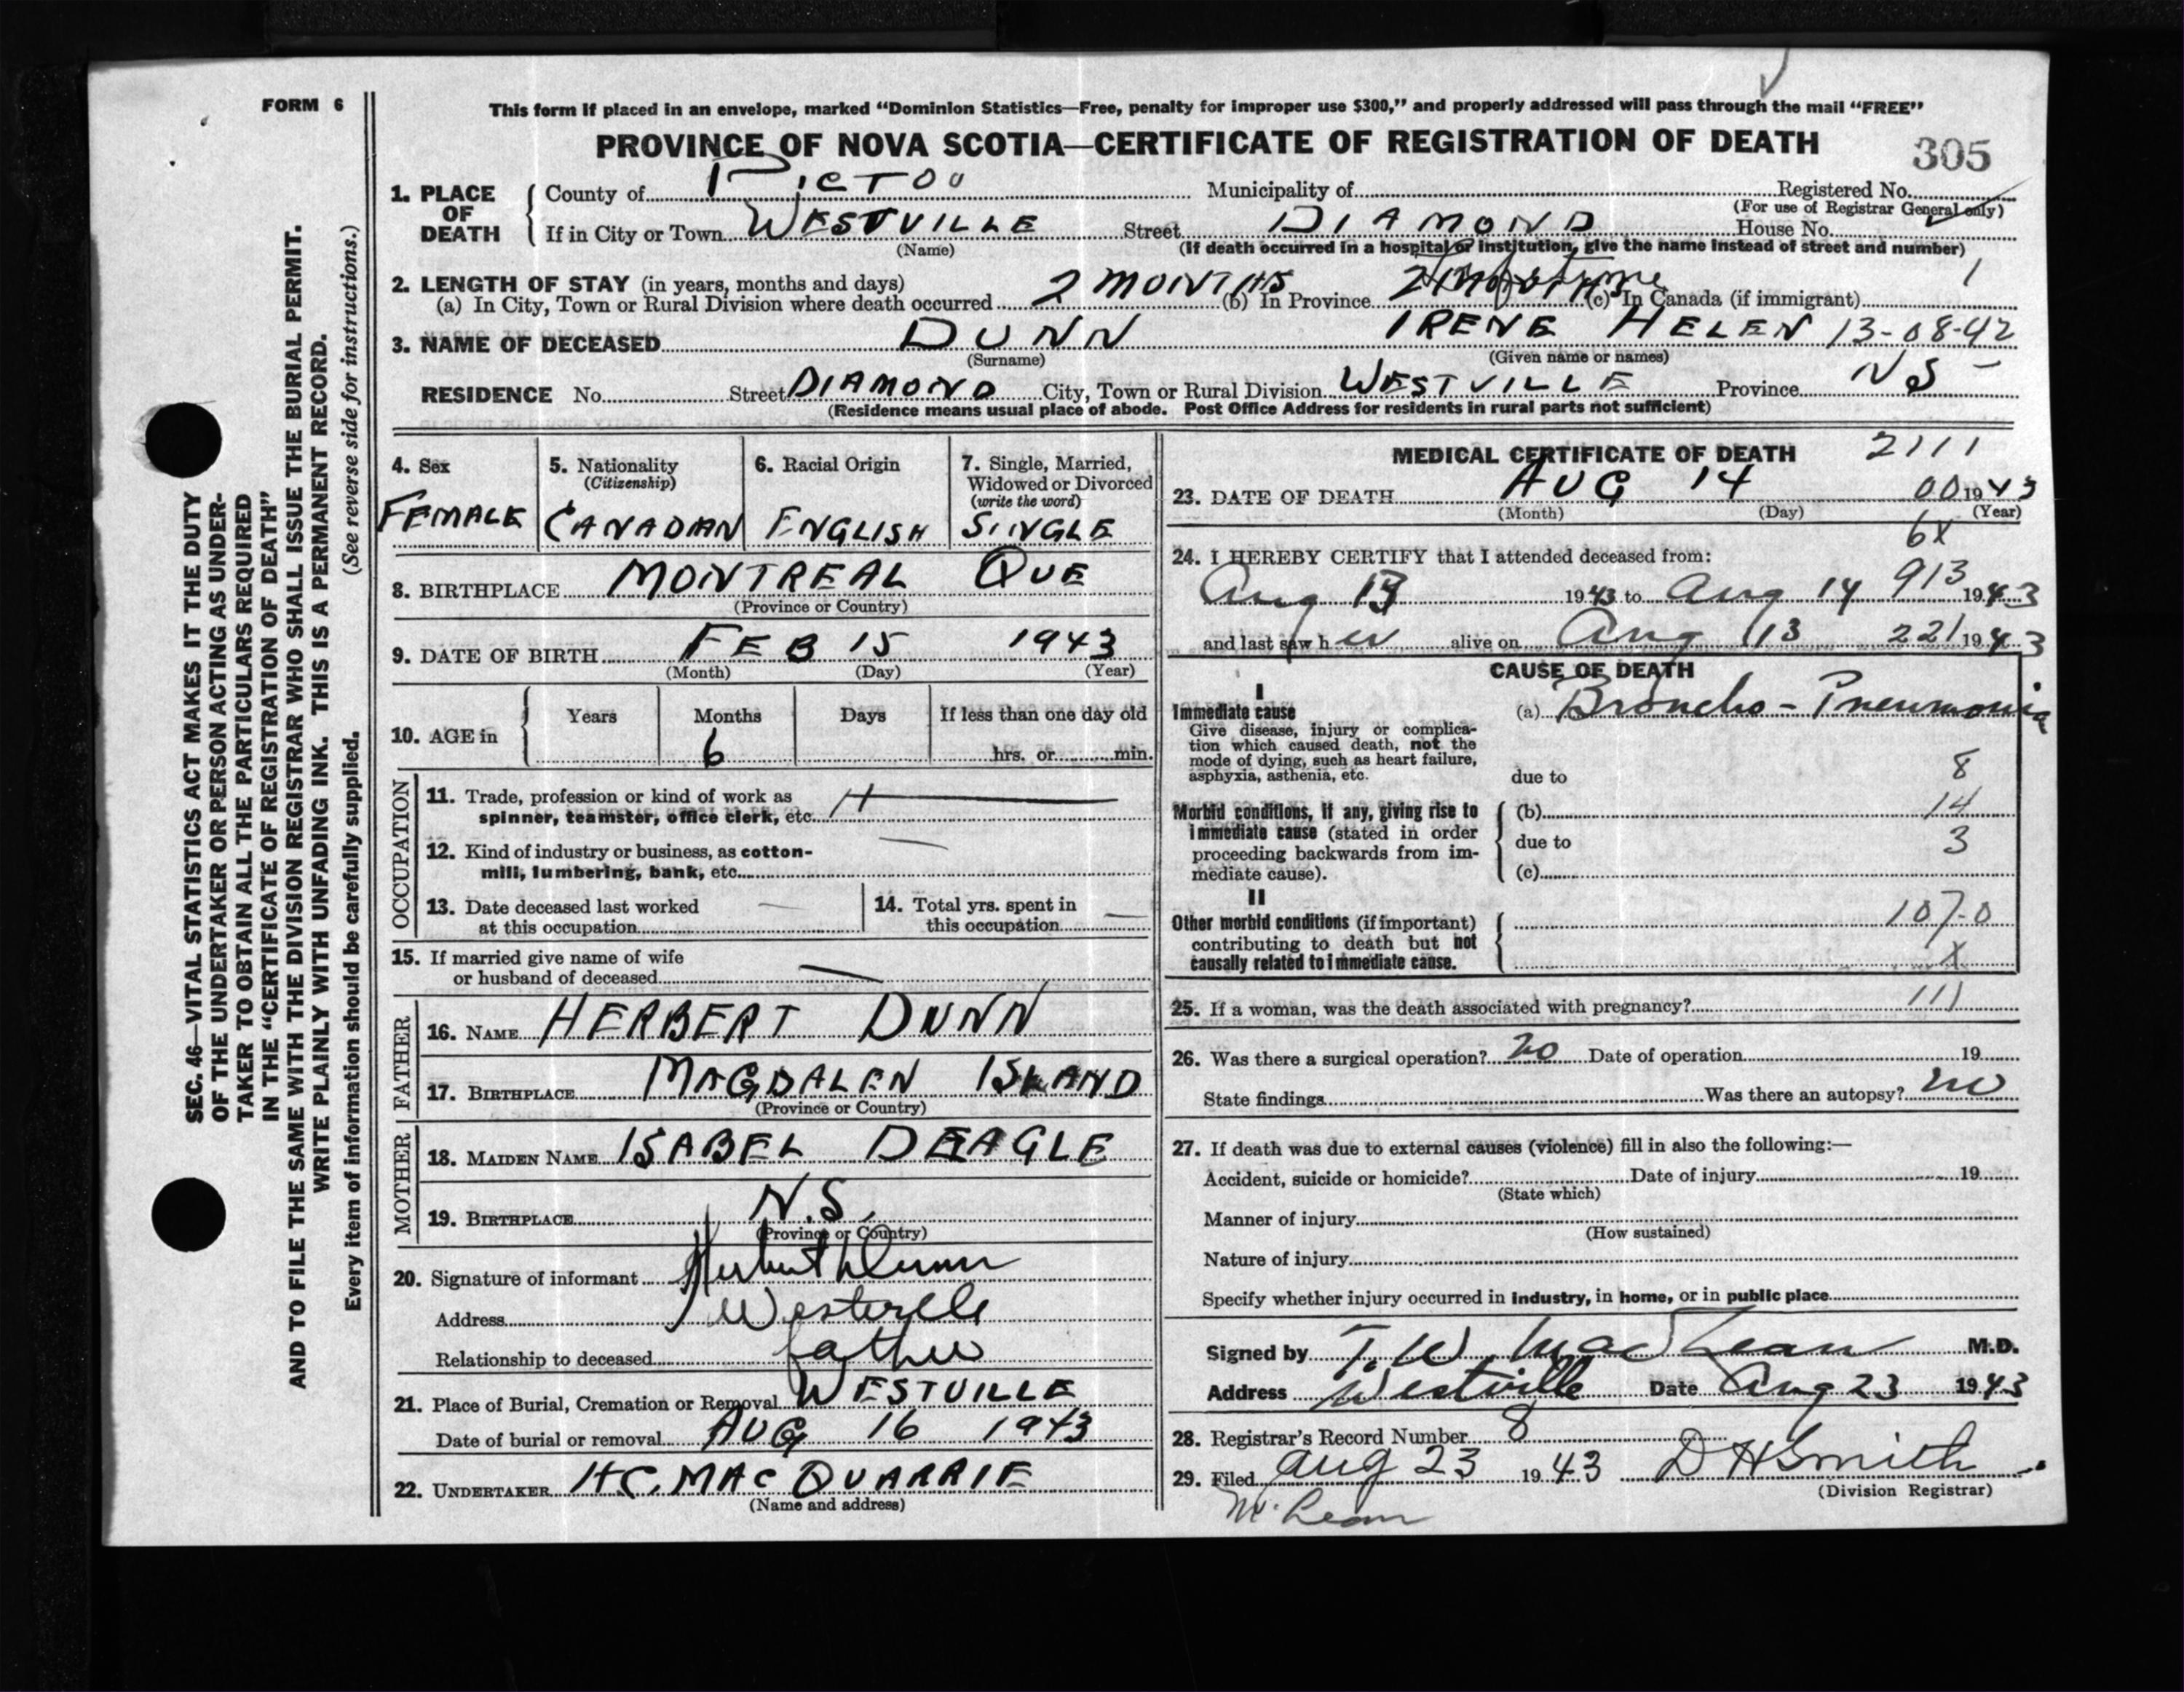 FORM 6
This form if placed in an envelope, marked “Dominion Statistics—Free, penalty for improper use $300,” and properly addressed will pass through the mail “FREE”
PROVINCE OF NOVA SCOTIA—CERTIFICATE OF REGISTRATION OF DEATH
305
1. PLACE OF DEATH
County of PICTOU Municipality of Registered No.
(For use of Registrar General only)
If in City or Town WESTVILLE Street DIAMOND House No.
(Name) (If death occurred in a hospital or institution, give the name instead of street and number)
2. LENGTH OF STAY (in years, months and days) 1
(a) In City, Town or Rural Division where death occurred 2 MONTHS (b) In Province (c) In Canada (if immigrant)
3. NAME OF DECEASED DUNN IRENE HELEN 13-08-42
(Surname) (Given name or names)
RESIDENCE No. Street DIAMOND City, Town or Rural Division WESTVILLE Province NS -
(Residence means usual place of abode. Post Office Address for residents in rural parts not sufficient)
4. Sex
FEMALE
5. Nationality
(Citizenship)
CANADIAN
6. Racial Origin
ENGLISH
7. Single, Married,
Widowed or Divorced
(write the word)
SINGLE
8. BIRTHPLACE MONTREAL QUE
(Province or Country)
9. DATE OF BIRTH FEB 15 1943
(Month) (Day) (Year)
10. AGE in
Years Months Days If less than one day old
6 hrs. or min.
OCCUPATION
11. Trade, profession or kind of work as
spinner, teamster, office clerk, etc.
12. Kind of industry or business, as cotton-
mill, lumbering, bank, etc.
13. Date deceased last worked
at this occupation
14. Total yrs. spent in
this occupation
15. If married give name of wife
or husband of deceased
FATHER
16. NAME HERBERT DUNN
17. BIRTHPLACE MAGDALEN ISLAND
(Province or Country)
MOTHER
18. MAIDEN NAME ISABEL DEAGLE
19. BIRTHPLACE N.S.
(Province or Country)
20. Signature of informant Herbert Dunn
Address Westville
Relationship to deceased father
21. Place of Burial, Cremation or Removal WESTVILLE
Date of burial or removal AUG 16 1943
22. UNDERTAKER H.C. MACQUARRIE
(Name and address)
MEDICAL CERTIFICATE OF DEATH 2111
23. DATE OF DEATH AUG 14 00 1943
(Month) (Day) (Year)
6X
24. I HEREBY CERTIFY that I attended deceased from:
Aug 13 1943 to Aug 14 913 1943
and last saw her alive on Aug 13 221 1943
CAUSE OF DEATH
I
Immediate cause (a) Broncho-Pneumonia
Give disease, injury or complica-
tion which caused death, not the
mode of dying, such as heart failure,
asphyxia, asthenia, etc. due to 8
Morbid conditions, if any, giving rise to (b) 14
immediate cause (stated in order
proceeding backwards from im- due to 3
mediate cause). (c)
II
Other morbid conditions (if important) 107-0
contributing to death but not
causally related to immediate cause. X
25. If a woman, was the death associated with pregnancy? 111
26. Was there a surgical operation? no Date of operation 19
State findings Was there an autopsy? no
27. If death was due to external causes (violence) fill in also the following:—
Accident, suicide or homicide? Date of injury 19
(State which)
Manner of injury
(How sustained)
Nature of injury
Specify whether injury occurred in industry, in home, or in public place
Signed by T. W. MacLean M.D.
Address Westville Date Aug 23 1943
28. Registrar's Record Number 8
29. Filed Aug 23 1943 D H Smith
(Division Registrar)
McLean
SEC. 46—VITAL STATISTICS ACT MAKES IT THE DUTY
OF THE UNDERTAKER OR PERSON ACTING AS UNDER-
TAKER TO OBTAIN ALL THE PARTICULARS REQUIRED
IN THE “CERTIFICATE OF REGISTRATION OF DEATH”
AND TO FILE THE SAME WITH THE DIVISION REGISTRAR WHO SHALL ISSUE THE BURIAL PERMIT.
WRITE PLAINLY WITH UNFADING INK. THIS IS A PERMANENT RECORD.
Every item of information should be carefully supplied. (See reverse side for instructions.)